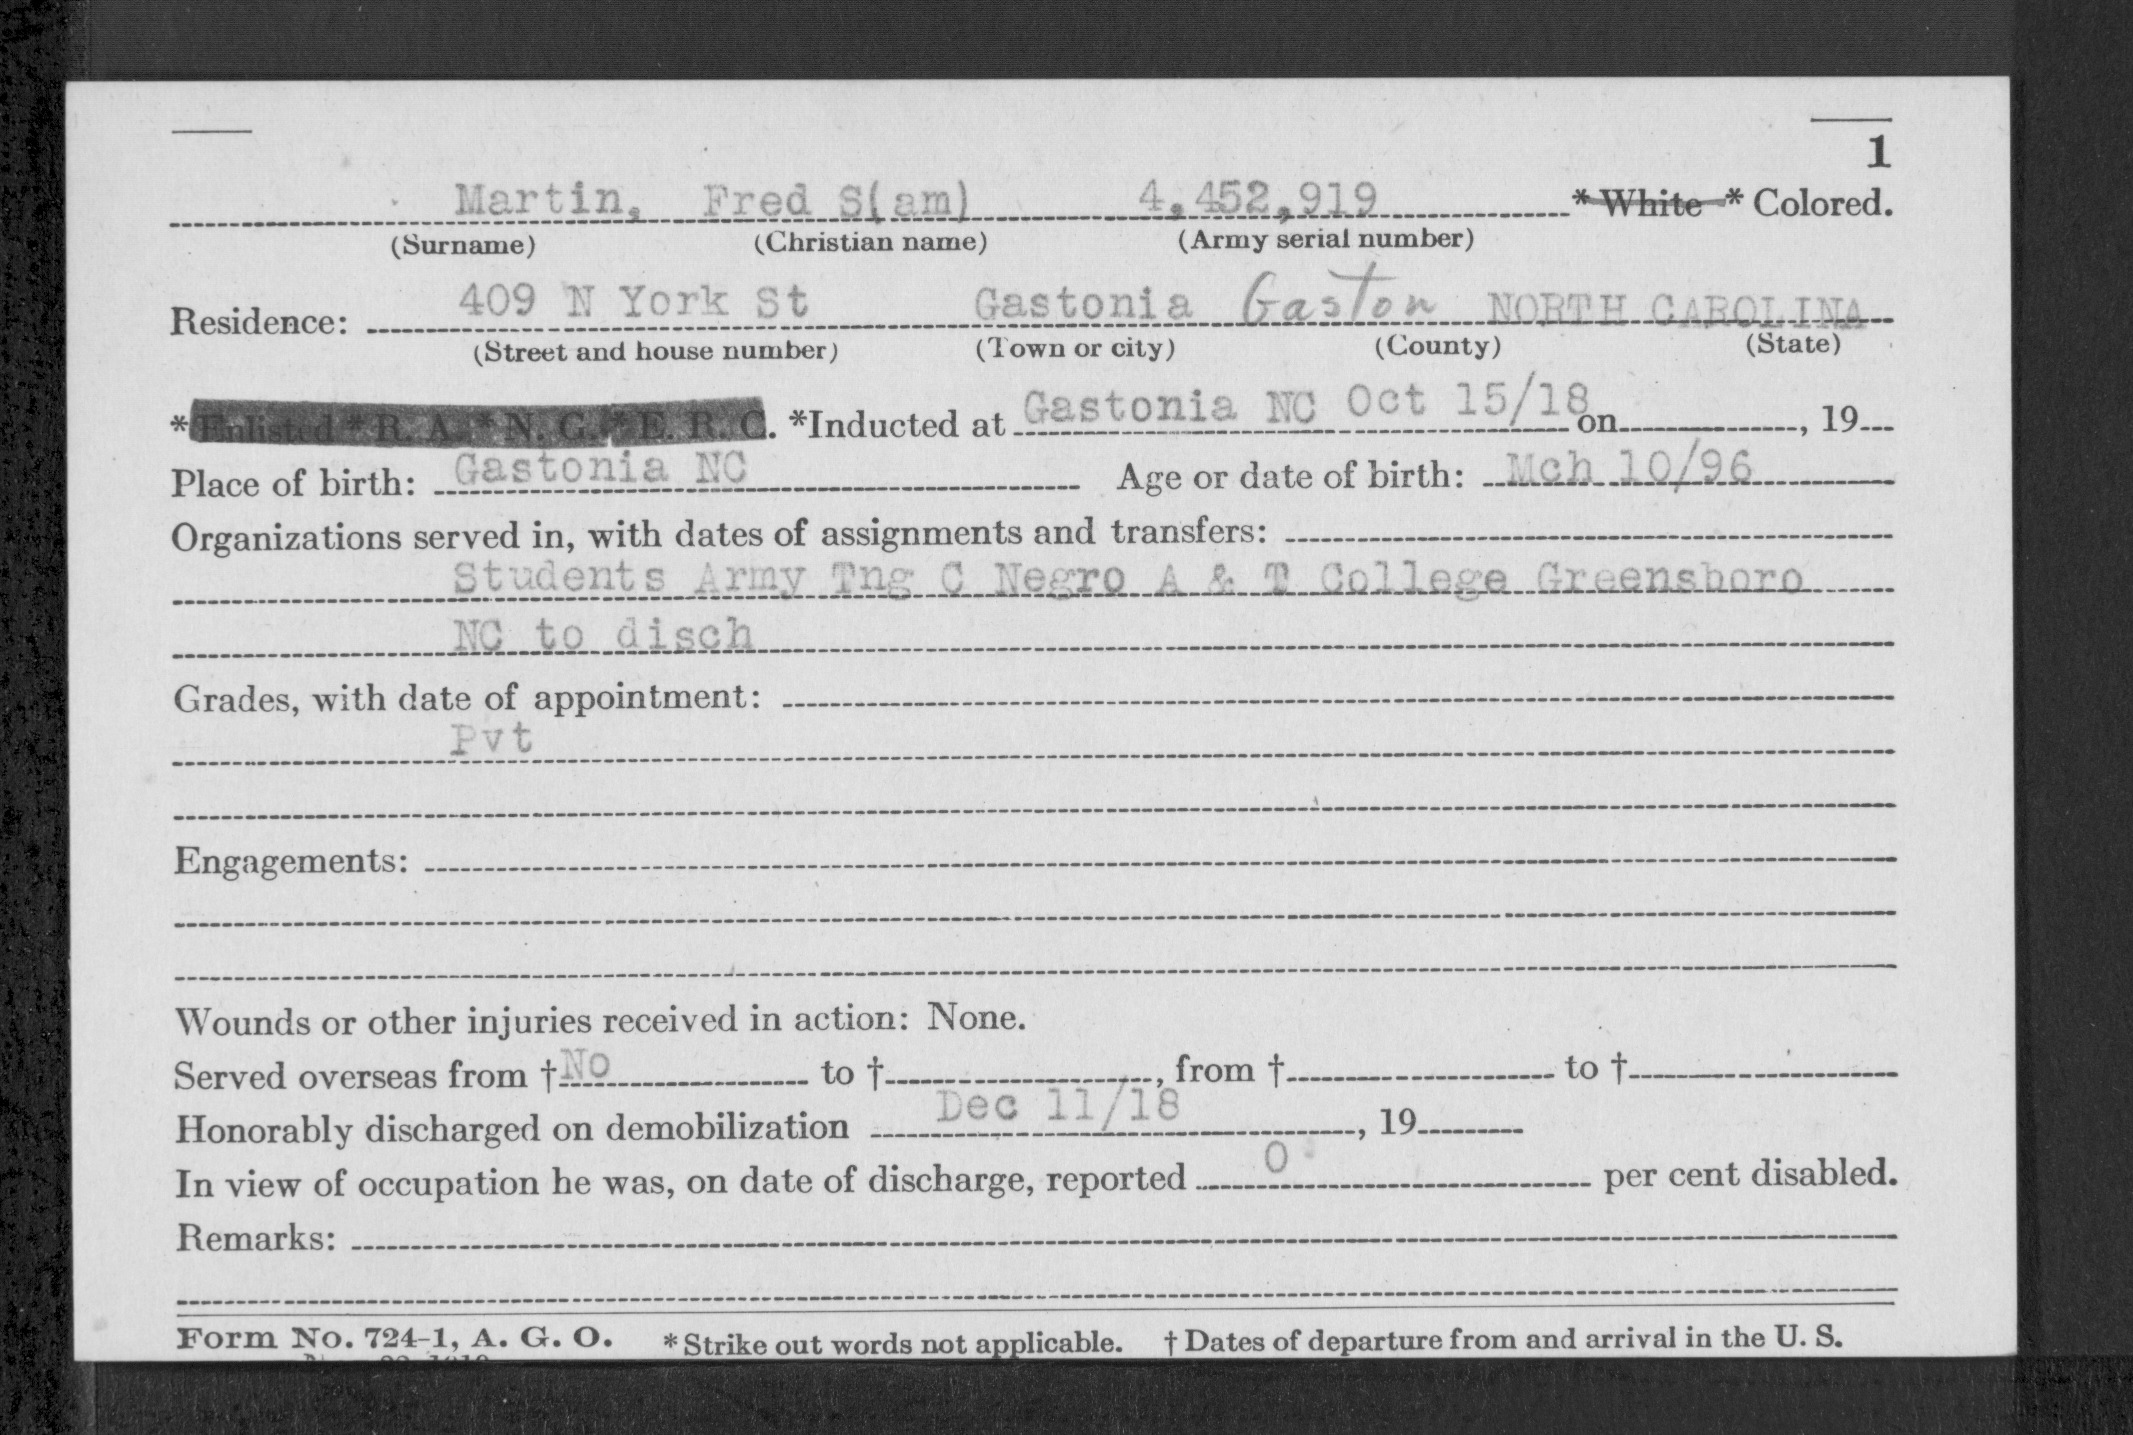 1
Martin, Fred S(am) 4,452,919 * White * Colored.
(Surname) (Christian name) (Army serial number)
Residence: 409 N York St Gastonia Gaston NORTH CAROLINA
(Street and house number) (Town or city) (County) (State)
*Enlisted * R. A. * N. G. * E. R. C. *Inducted at Gastonia NC Oct 15/18 on , 19
Place of birth: Gastonia NC Age or date of birth: Mch 10/96
Organizations served in, with dates of assignments and transfers:
Students Army Tng C Negro A & T College Greensboro
NC to disch
Grades, with date of appointment:
Pvt
Engagements:
Wounds or other injuries received in action: None.
Served overseas from † No to † , from † to †
Honorably discharged on demobilization Dec 11/18 , 19
In view of occupation he was, on date of discharge, reported 0 per cent disabled.
Remarks:
Form No. 724-1, A. G. O. * Strike out words not applicable. † Dates of departure from and arrival in the U. S.